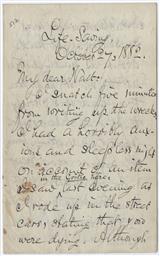 Life-Saving,
October 27, 1882.
My dear Walt:
I snatch five minutes
from writing up the wrecks.
I had a horribly anx-
ious and sleepless night
on account of an item
in the Critic, here,
I saw last evening as
I rode up in the street
cars, stating that you
were dying. Although